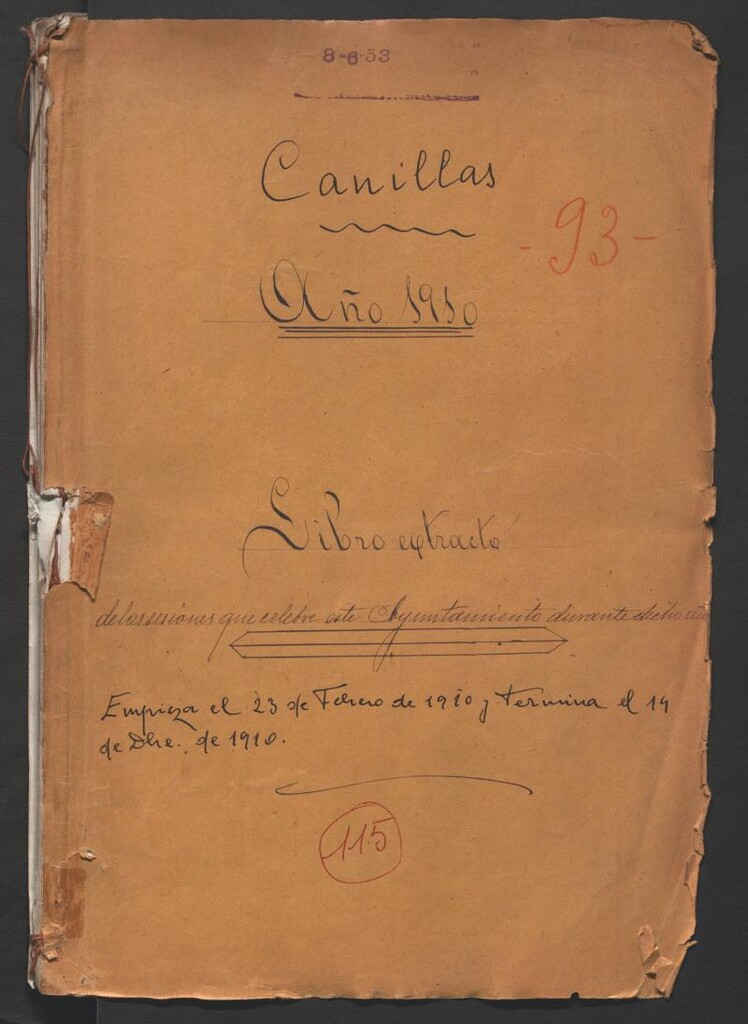 8-6-53
Canillas
- 93 -
Año 1910
Libro extracto
de las sesiones que celebre este Ayuntamiento durante dicho año
Empieza el 23 de Febrero de 1910 y termina el 14
de Dbre. de 1910.
115